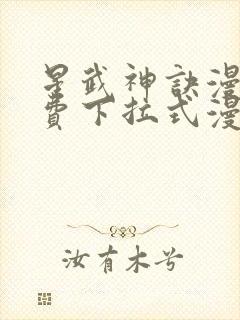 星武神訣漫
費下拉式漫
汝有木兮